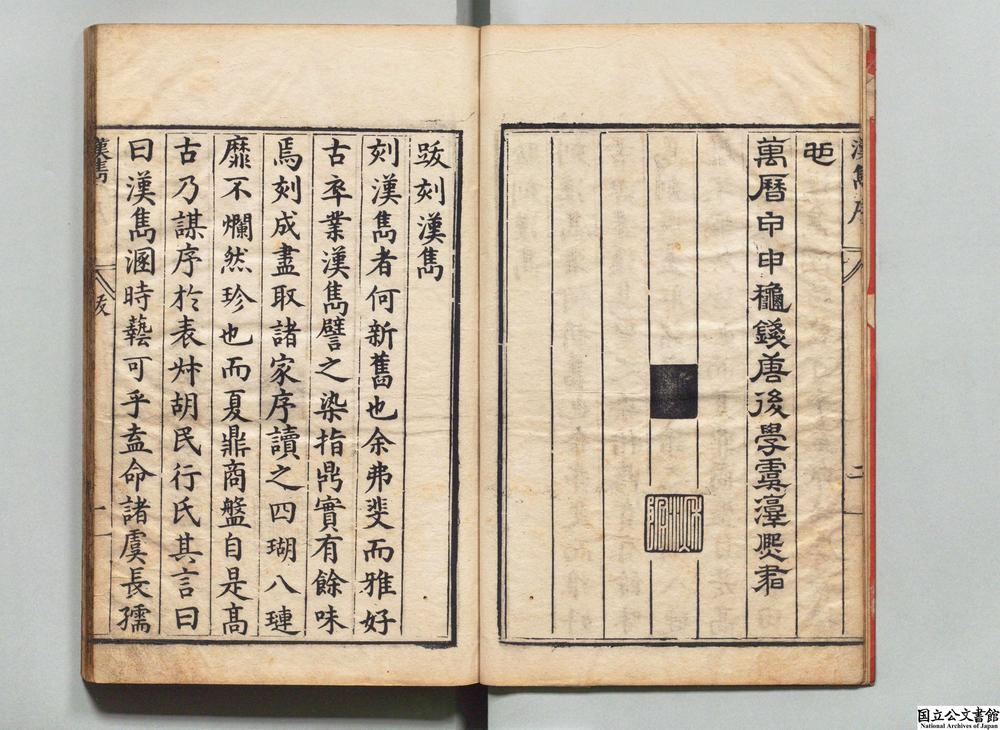 漢雋序
二
也
萬曆甲申穐錢唐後學虞淳熙書
跋刻漢雋
刻漢雋者何新舊也余弗斐而雅好
古卒業漢雋譬之染指鼎實有餘味
焉刻成盡取諸家序讀之四瑚八璉
靡不爛然珍也而夏鼎商盤自是髙
古乃謀序於表叔胡民行氏其言曰
曰漢雋溷時藝可乎盍命諸虞長孺
漢雋
跋
一
国立公文書館
National Archives of Japan